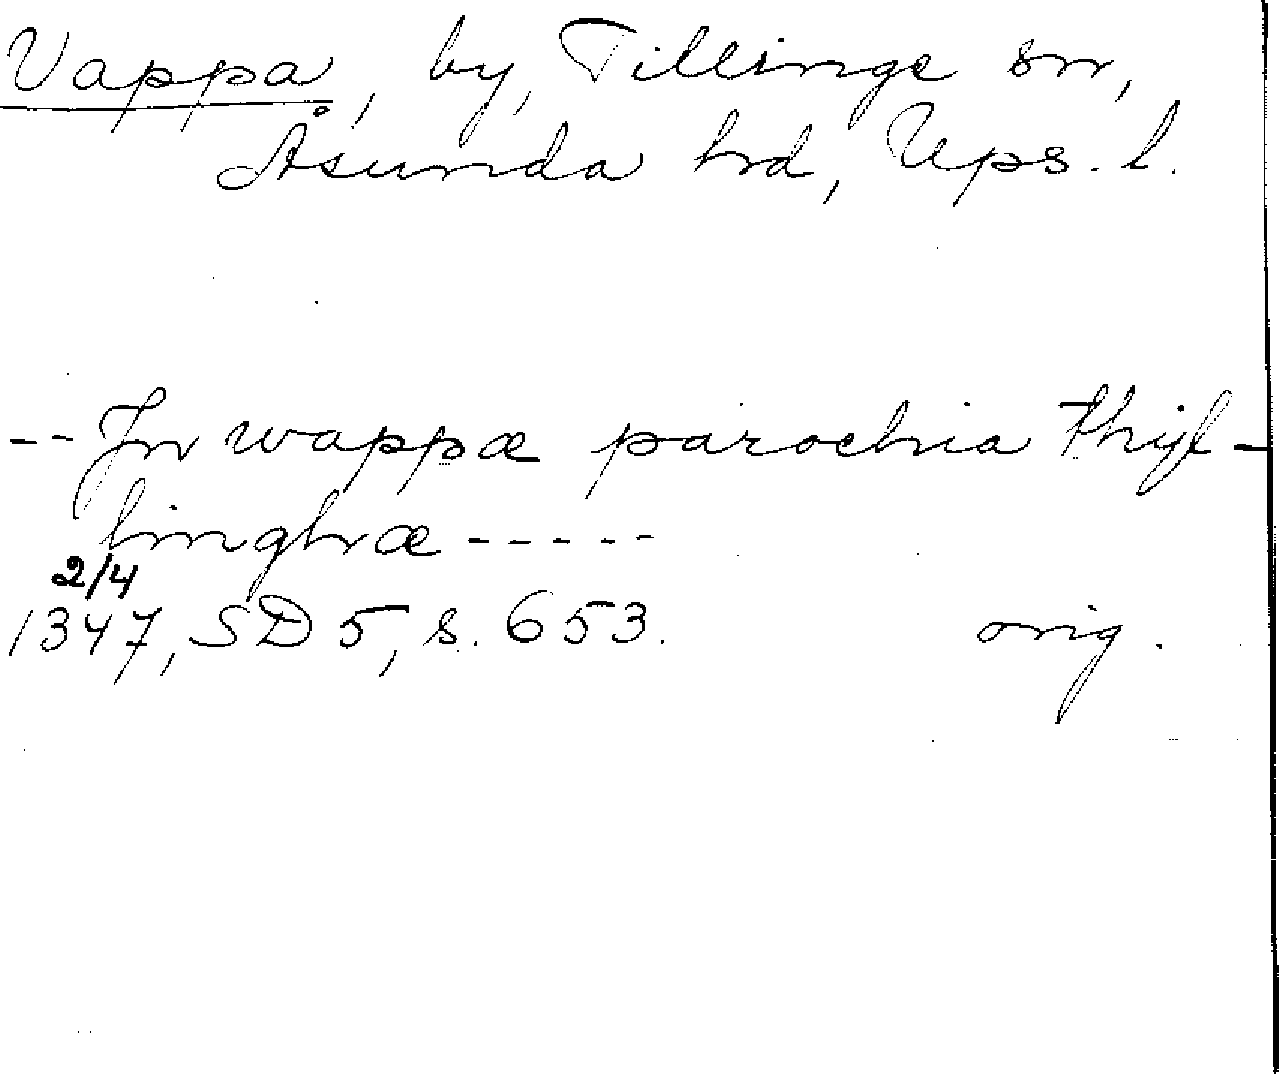 Vappa, by, Tillinge sn,
Åsunda hrd, Ups. l.
-- Jn wappæ parochia thyl-
linghræ -----
2/4
1347, SD 5, s. 653. orig.